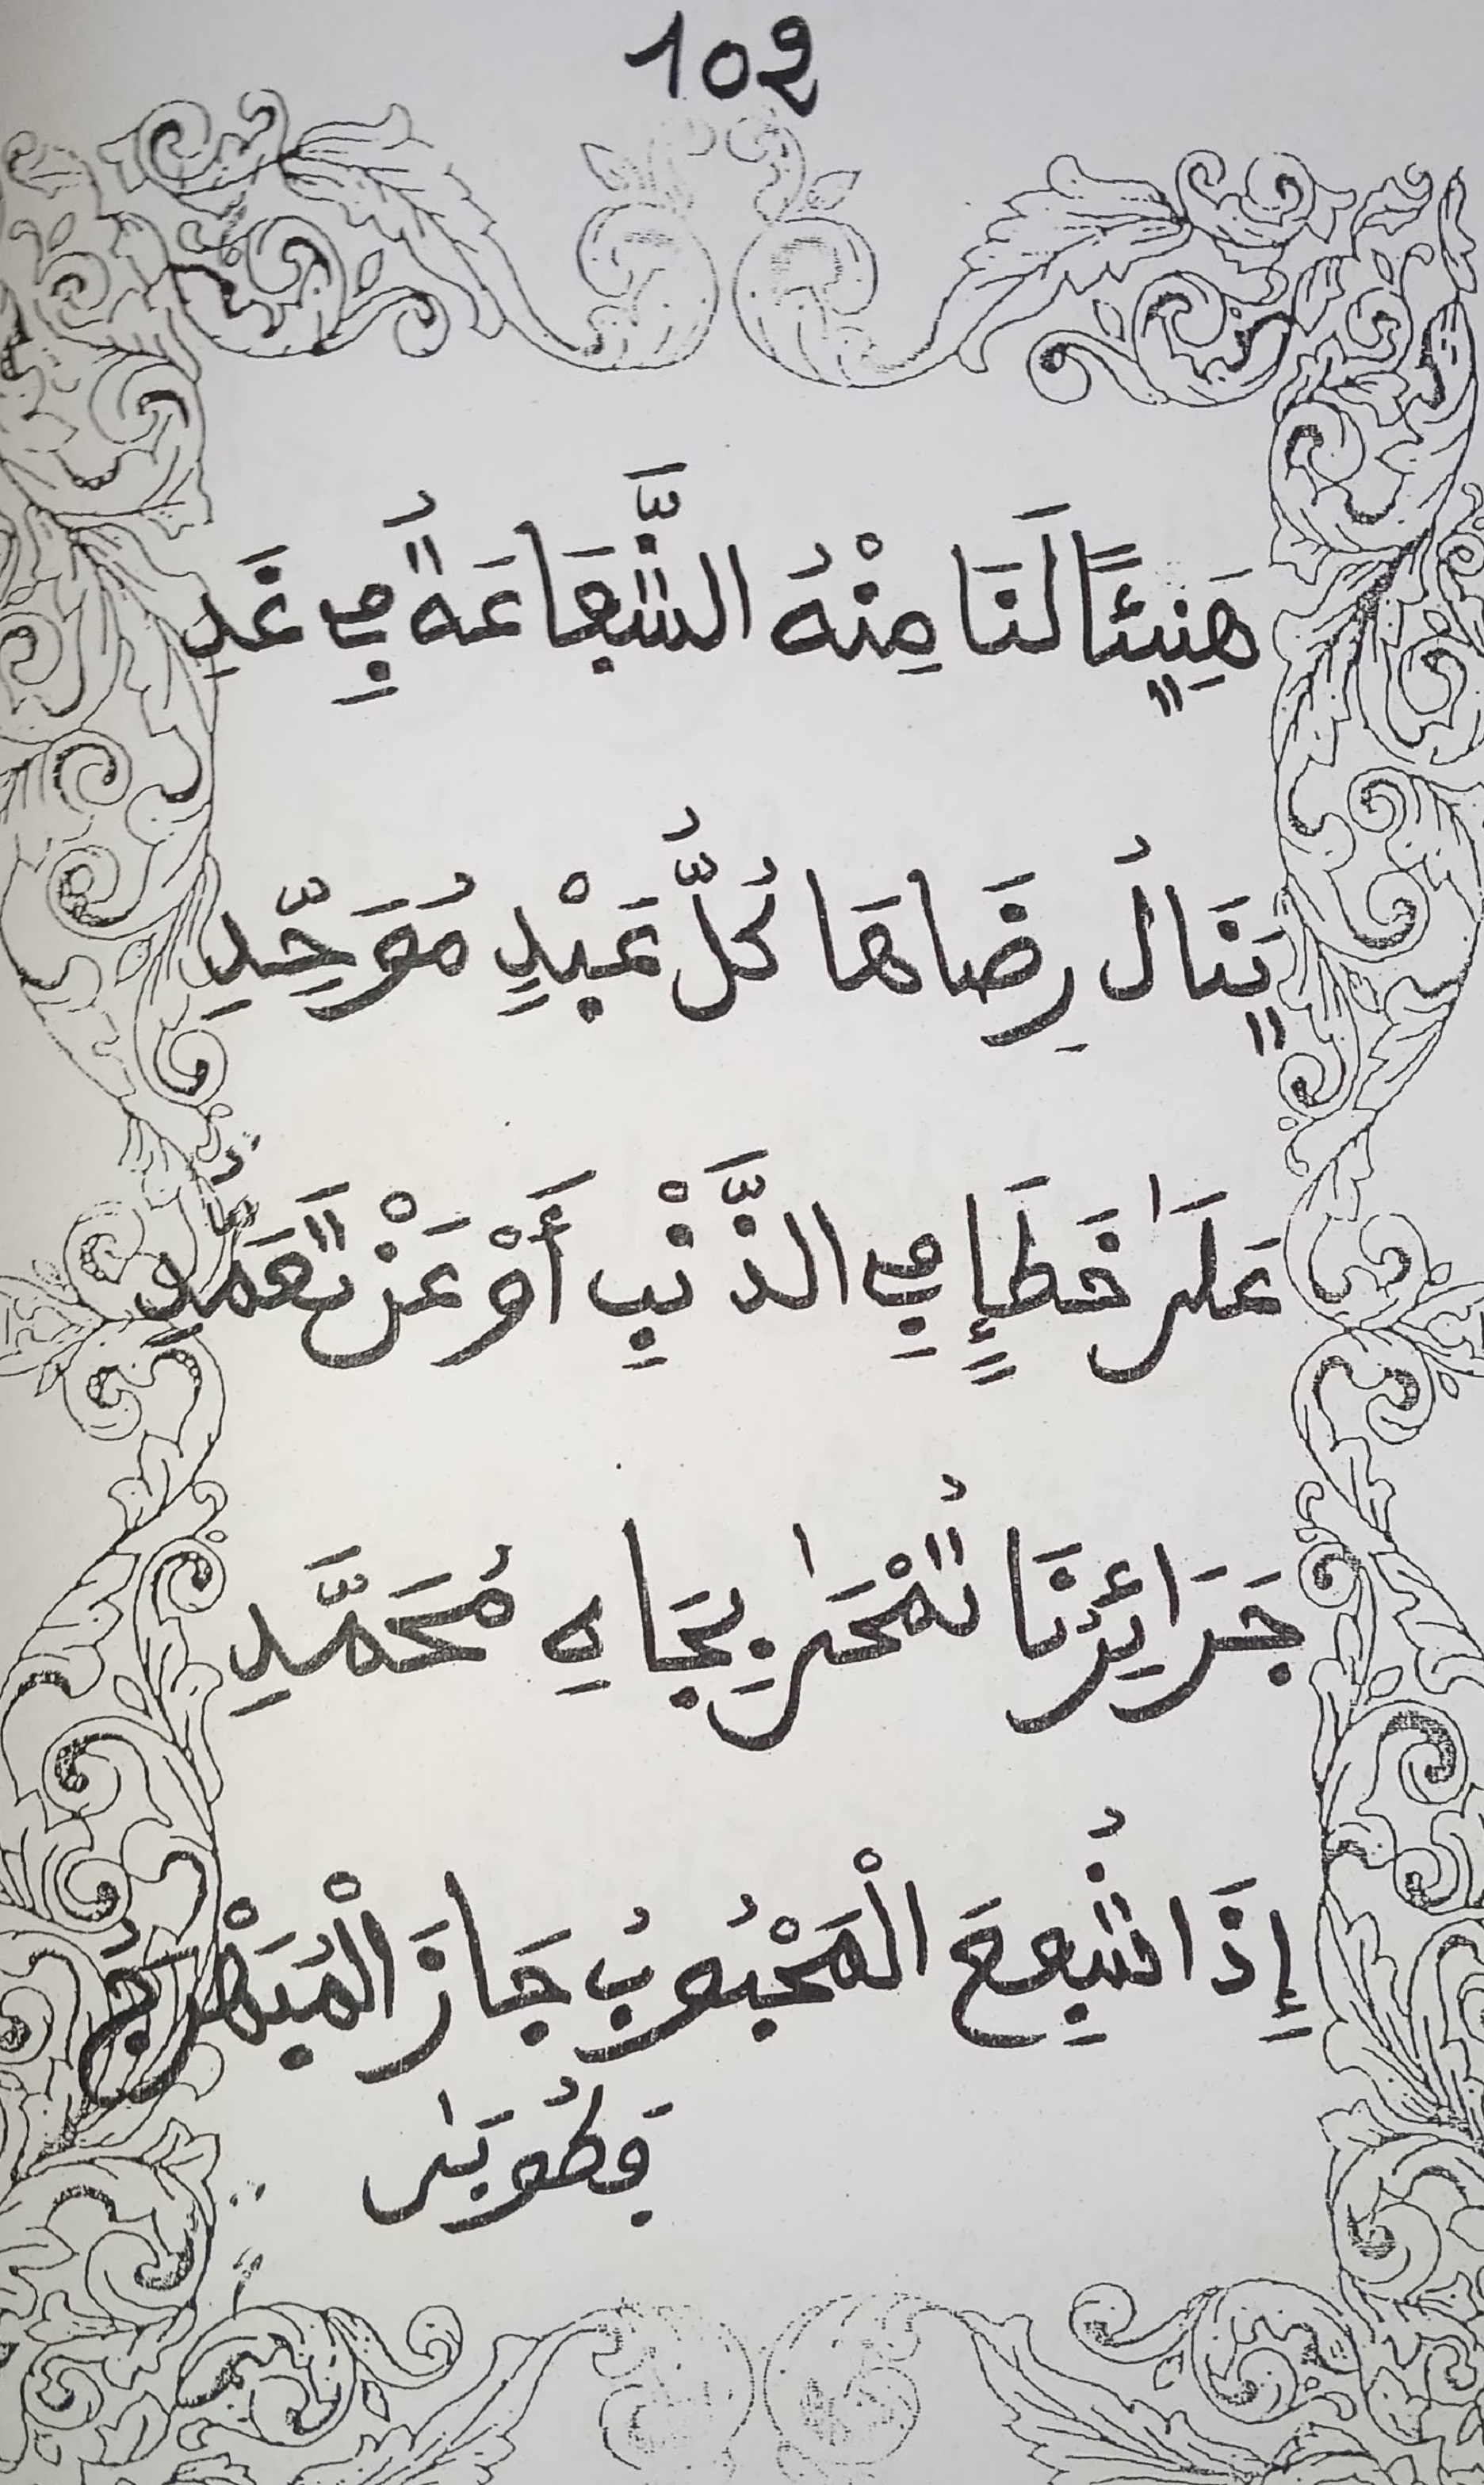 102
هَنِيئًا لَنَا مِنْهُ الشَّفَاعَةُ فِي غَدِ
يَنَالُ رِضَاهَا كُلُّ عَبْدٍ مُوَحِّدِ
عَلَىٰ خَطَإٍ فِي الذَّنْبِ أَوْ عَنْ تَعَمُّدِ
جَرَائِرُنَا تُمْحَىٰ بِجَاهِ مُحَمَّدِ
إِذَا شُفِّعَ الْمَحْبُوبُ جَازَ الْمُبَهْرَجُ
وَطُوبَىٰ